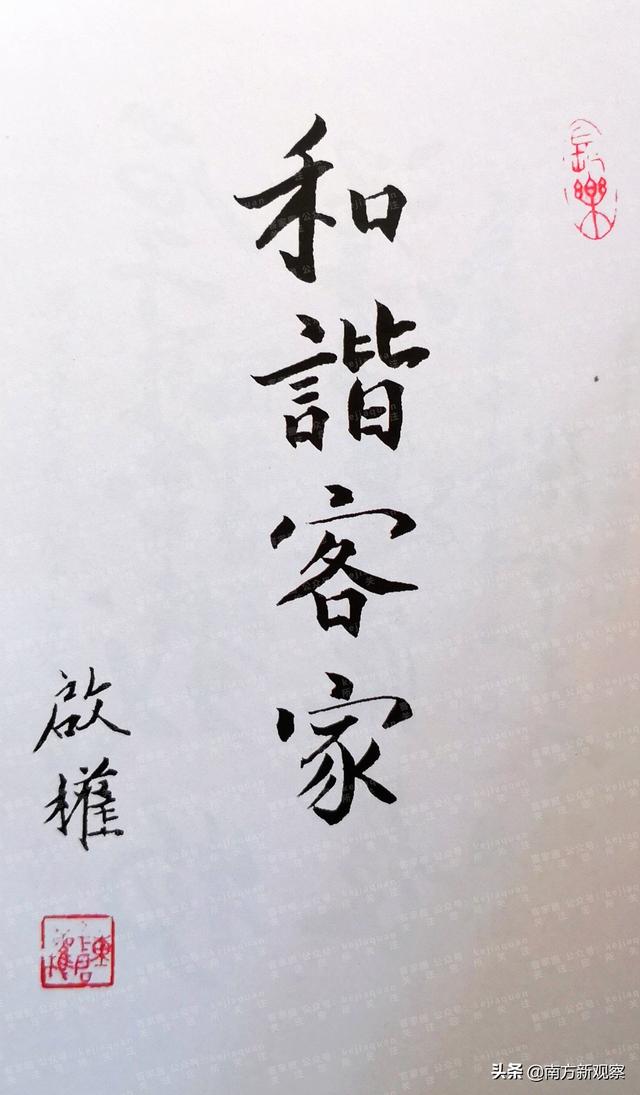 長樂
和諧客家
啟權
头条 @南方新观察